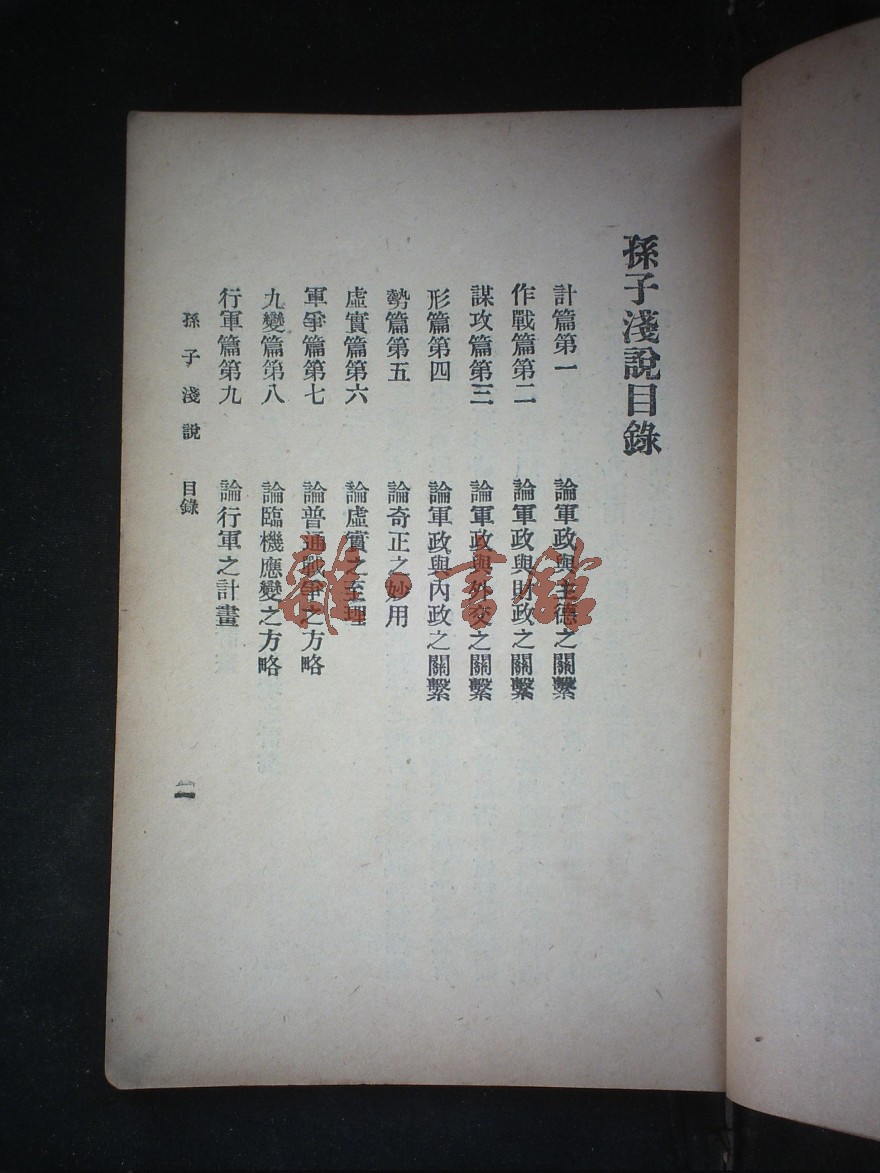 孫子淺說目錄
計篇第一 論軍政與主德之關繫
作戰篇第二 論軍政與財政之關繫
謀攻篇第三 論軍政與外交之關繫
形篇第四 論軍政與內政之關繫
勢篇第五 論奇正之妙用
虛實篇第六 論虛實之至理
軍爭篇第七 論普通戰爭之方略
九變篇第八 論臨機應變之方略
行軍篇第九 論行軍之計畫
孫子淺說 目錄